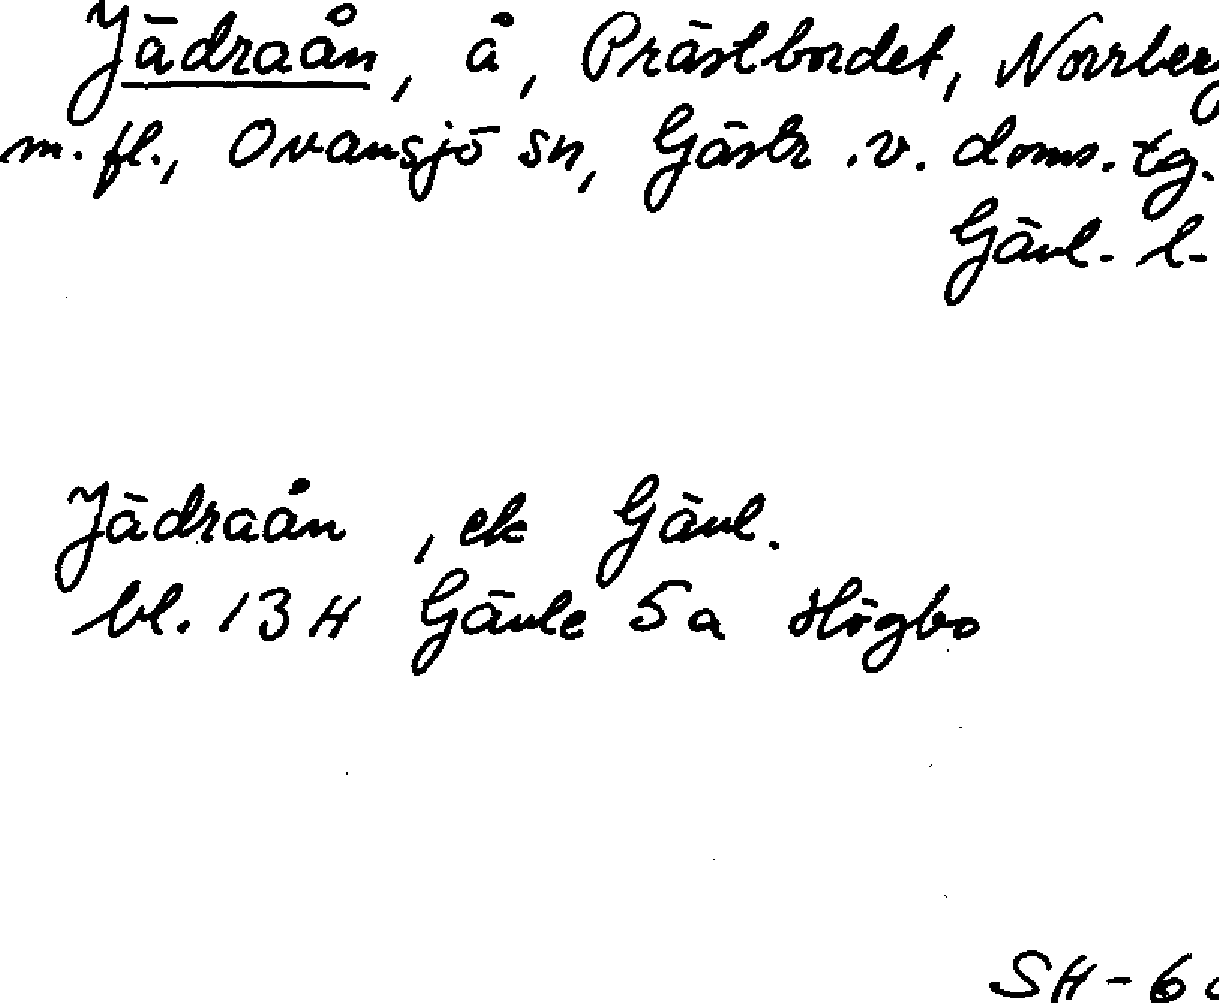 Jädraån, å, Prästbordet, Norrberg
m. fl., Ovansjö sn, Gästr. v. doms. tg.
Gävl. l.
Jädraån, ek Gävl.
bl. 13 H Gävle 5 a Högbo
SH-6